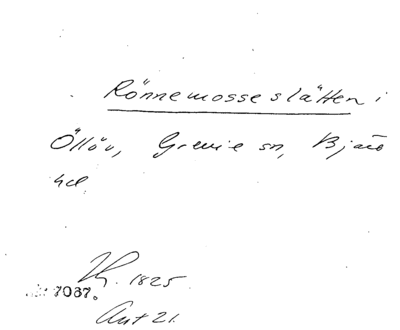 Rönnemosseslätten i
Öllöv, Grevie sn, Bjäre
hd.
Th. 1825.
7087.
Ant 21.